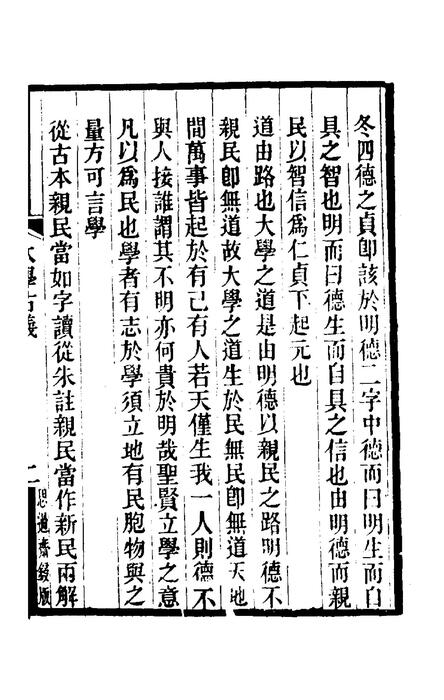 冬四德之貞卽該於明德二字中德而曰明生而自
具之智也明而曰德生而自具之信也由明德而親
民以智信爲仁貞下起元也
道由路也大學之道是由明德以親民之路明德不
親民卽無道故大學之道生於民無民卽無道天地
間萬事皆起於有己有人若天僅生我一人則德不
與人接誰謂其不明亦何貴於明哉聖賢立學之意
凡以爲民也學者有志於學須立地有民胞物與之
量方可言學
從古本親民當如字讀從朱註親民當作新民兩解
大學古義
二
思過齋鋟版